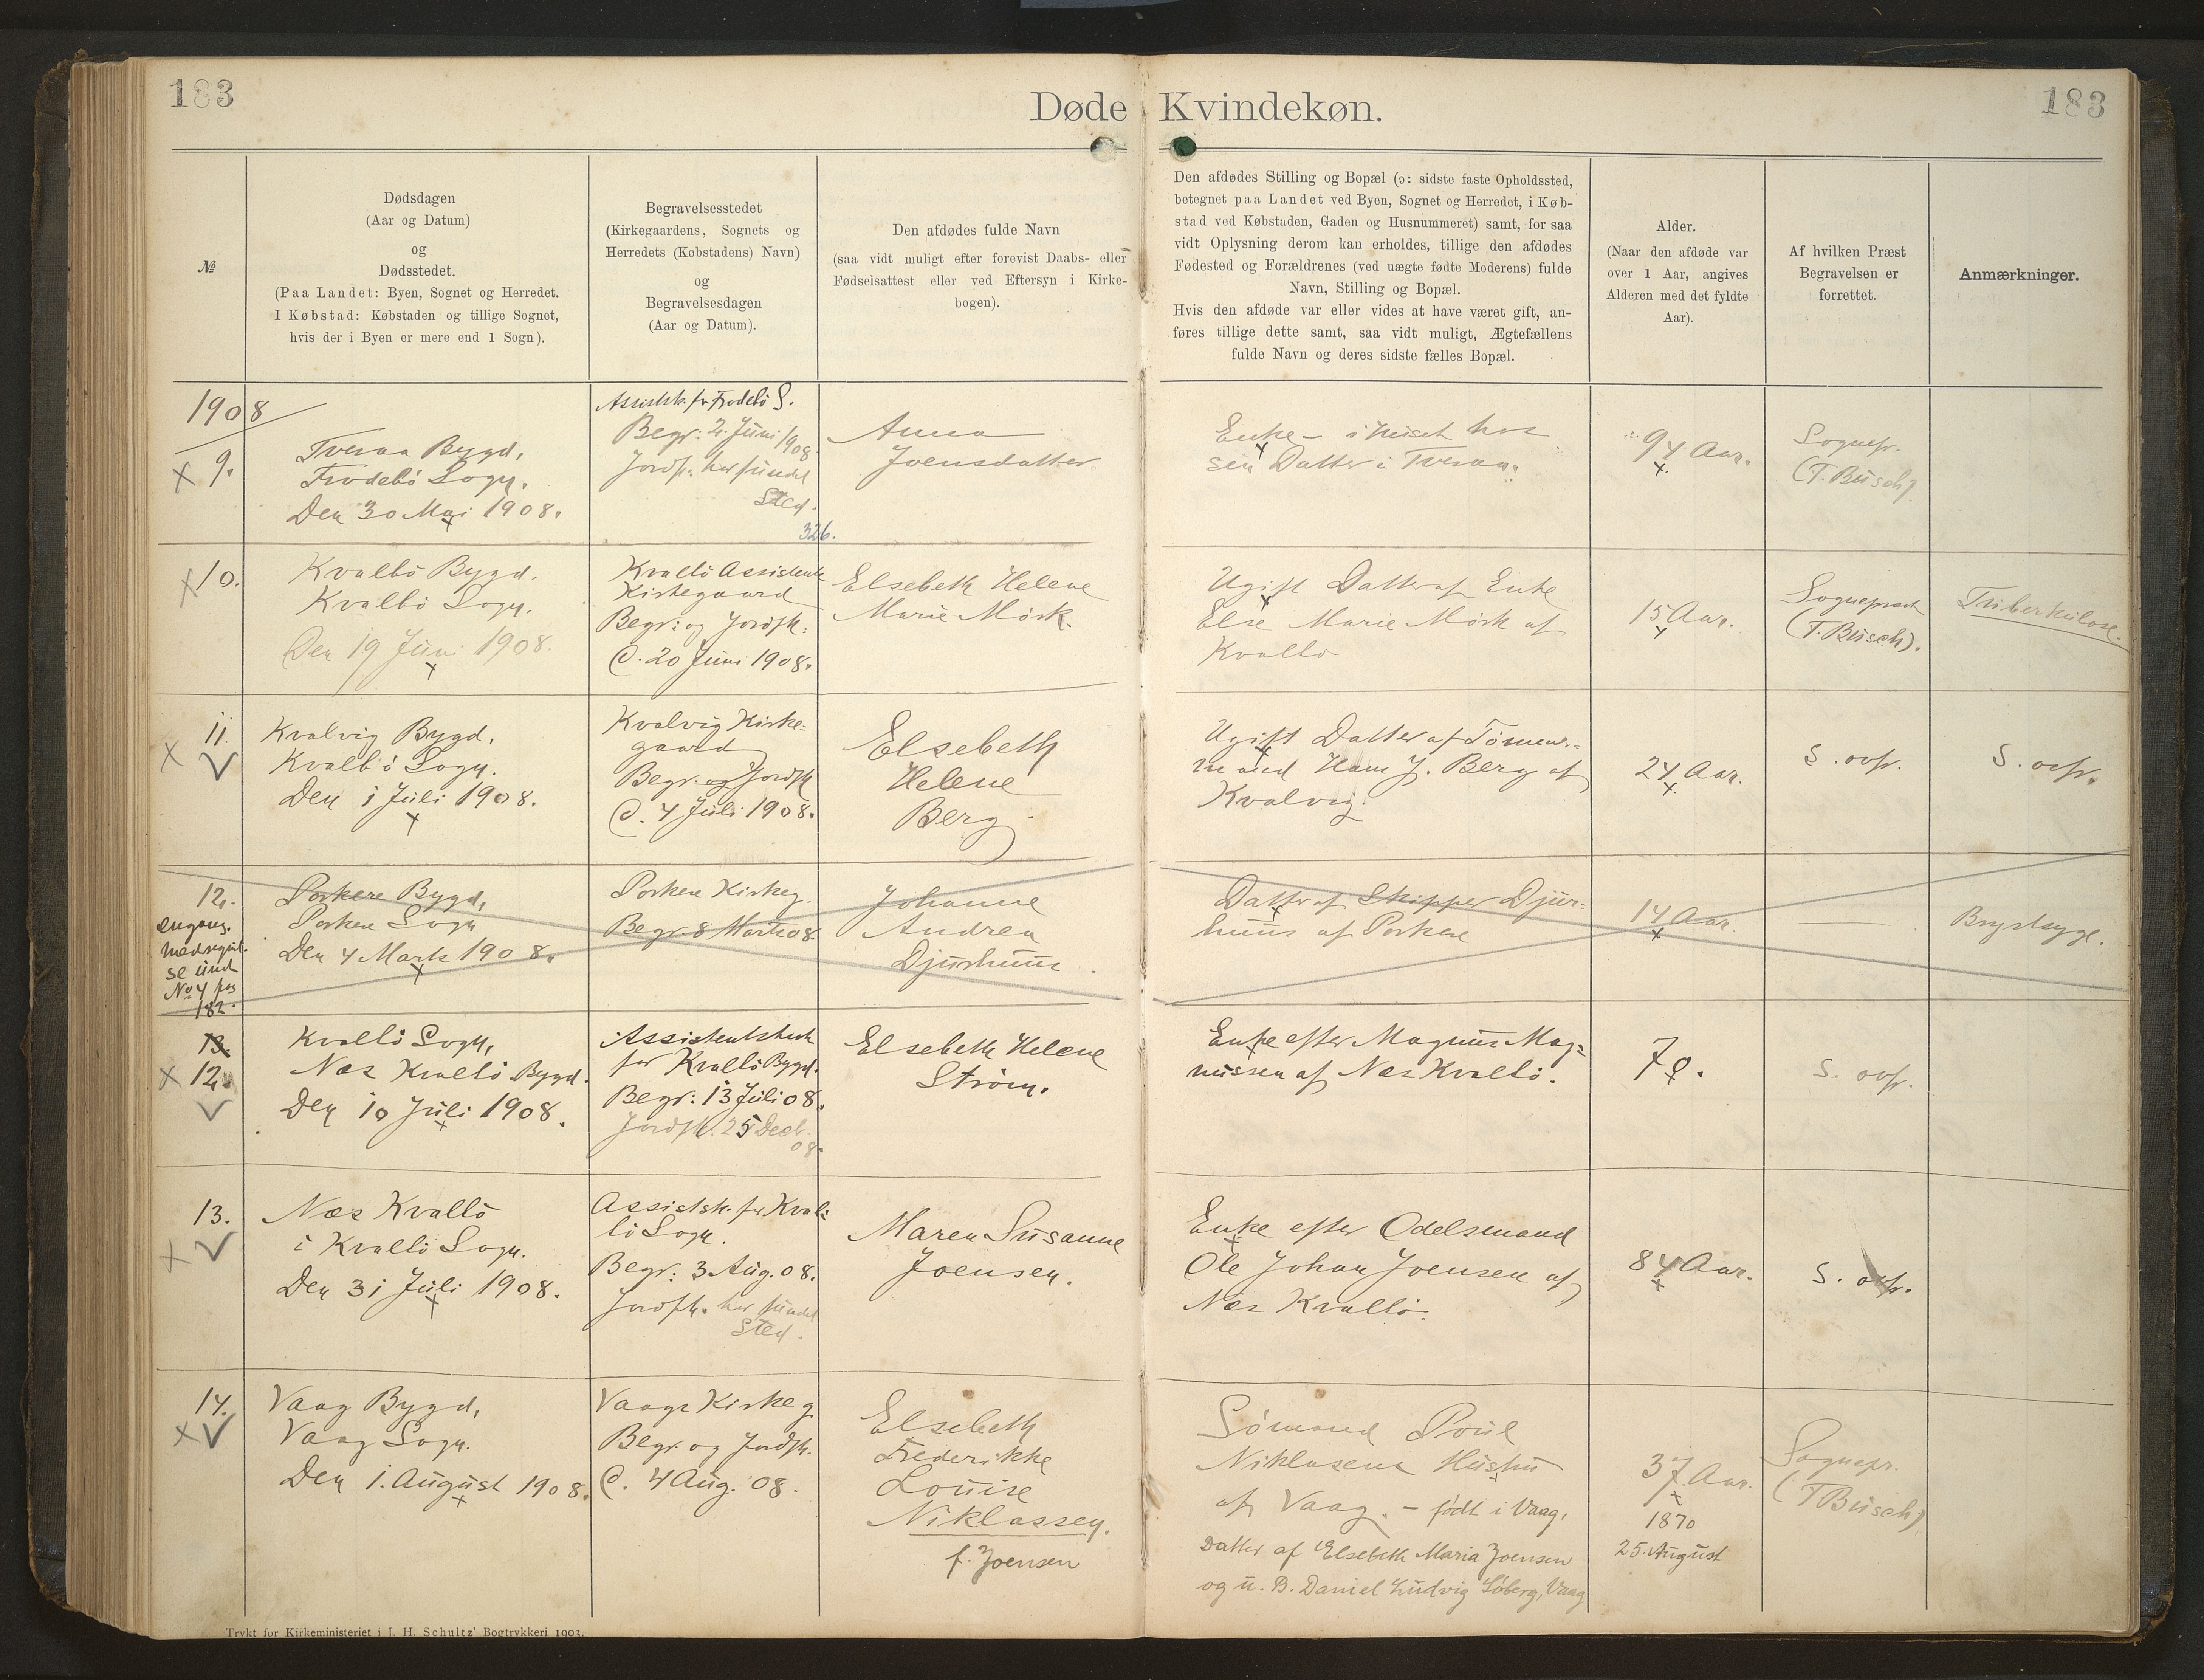 183
Døde Kvindekøn.
183
№
Dødsdagen
(Aar og Datum)
og
Dødsstedet.
(Paa Landet: Byen, Sognet og Herredet.
I Købstad: Købstaden og tillige Sognet,
hvis der i Byen er mere end 1 Sogn).
Begravelsesstedet
(Kirkegaardens, Sognets og
Herredets (Købstadens) Navn)
og
Begravelsesdagen
(Aar og Datum).
Den afdødes fulde Navn
(saa vidt muligt efter forevist Daabs- eller
Fødselsattest eller ved Eftersyn i Kirke-
bogen).
Den afdødes Stilling og Bopæl (ɔ: sidste faste Opholdssted,
betegnet paa Landet ved Byen, Sognet og Herredet, i Køb-
stad ved Købstaden, Gaden og Husnummeret) samt, for saa
vidt Oplysning derom kan erholdes, tillige den afdødes
Fødested og Forældrenes (ved uægte fødte Moderens) fulde
Navn, Stilling og Bopæl.
Hvis den afdøde var eller vides at have været gift, an-
føres tillige dette samt, saa vidt muligt, Ægtefællens
fulde Navn og deres sidste fælles Bopæl.
Alder.
(Naar den afdøde var
over 1 Aar, angives
Alderen med det fyldte
Aar).
Af hvilken Præst
Begravelsen er
forrettet.
Anmærkninger.
1908
x 9.
Tveraa Bygd,
Frodebö Sogn.
Den 30 Mai 1908.
Assistk. for Frodebö S.
Begr: 2. Juni 1908
Jordfk. har fundet
Sted.
326.
Anna
Joensdatter
Enke – i Huset hos
sin Datter i Tveraa.
94 Aar.
Sognepr.
(T. Busch).
x 10.
Kvalbö Bygd.
Kvalbö Sogn.
Den 19 Juni 1908.
Kvalbö Assistents
Kirkegaard
Begr: og Jordfk:
d. 20 Juni 1908.
Elsebeth Helene
Marie Mörk.
Ugift Datter af Enke
Else Marie Mörk af
Kvalbö
15 Aar.
Sognepræst
(T. Busch).
Tuberkulose.
x 11.
Kvalvig Bygd,
Kvalbö Sogn.
Den 1 Juli 1908.
Kvalvig Kirke-
gaard
Begr. og Jordfk
d. 4 Juli 1908.
Elsebeth
Helene
Berg
Ugift Datter af Tömmer-
mand Hans J. Berg af
Kvalvig.
24 Aar.
S. ovfr.
S. ovfr.
12.
No 4 pag
182.
Porkere Bygd,
Porkere Sogn
Den 4 Marts 1908.
Porkere Kirkeg.
Begr. 8 Marts 08.
Johanne
Andrea
Djurhuus
Datter af Skipper Djur-
huus af Porkere
14 Aar.
Brystsyge.
13
x 12.
Kvalbö Sogn,
Næs Kvalbö Bygd.
Den 10 Juli 1908.
Assistentskirk
for Kvalbö Bygd.
Begr: 13 Juli 08.
Jordfk. 25 Decbr.
08.
Elsebeth Helene
Ström.
Enke efter Magnus Mag-
nussen af Næs Kvalbö.
70.
S. ovfr.
x 13.
Næs Kvalbö
i Kvalbö Sogn.
Den 31 Juli 1908.
Assistsk. for Kval-
bö Sogn.
Begr: 3 Aug. 08.
Jordfk. har fundet
Sted.
Maren Susanne
Joensen.
Enke efter Odelsmand
Ole Johan Joensen af
Næs Kvalbö.
84 Aar.
S. ovfr.
x 14.
Vaag Bygd,
Vaag Sogn.
Den 1. August 1908.
Vaags Kirkeg
Begr. og Jordfk.
d. 4 Aug. 08.
Elsebeth
Frederikke
Louise
Niklassen.
f. Joensen
Sömand Poul
Niklasens Hustru
af Vaag. – født i Vaag,
Datter af Elsebeth Maria Joensen
og u. B. Daniel Ludvig Søberg, Vaag
37 Aar.
1870
25. August
Sognepr.
(T Busch)
Trykt for Kirkeministeriet i J. H. Schultz' Bogtrykkeri 1903.